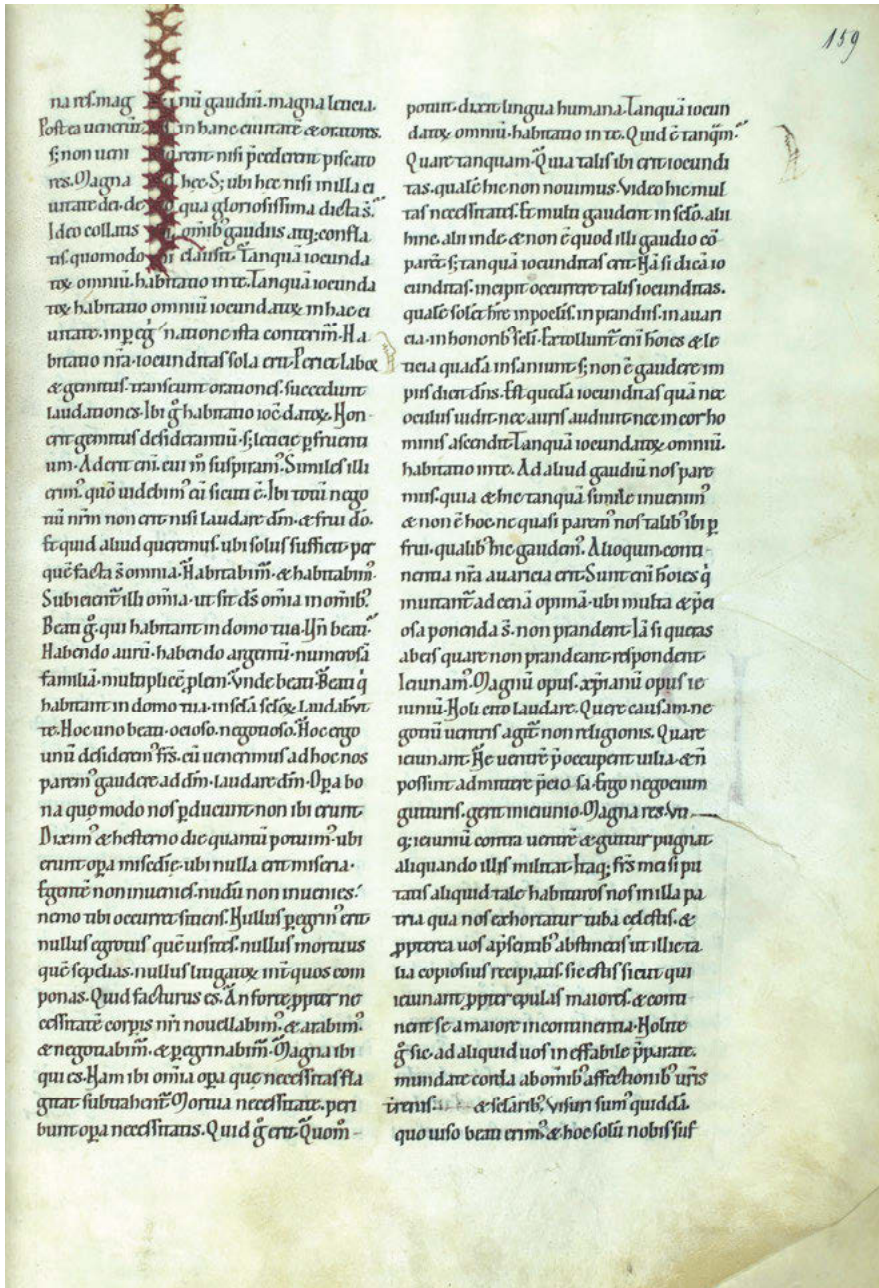 159
na res. mag nū gaudiū. magna leticia.
Post ea uenerūt in hanc ciuitatē & oratores.
sꝫ non ueni rent nisi p̄cederent piscato
res. Magna hec. Sꝫ ubi hec nisi in illa ci
uitate dei. de qua gloriosissima dicta s̄.
Ideo collatis omībꝰ gaudiis atqꝫ confla
tis. quomodo clausit. Tanquā iocunda
toꝝ omniū. habitatio in te. Tanquā iocunda
toꝝ habitatio omniū iocundatoꝝ in hac ci
uitate. in peg̓natione ista conterim̄. Ha
bitatio nr̄a. iocunditas sola erit. Periet laboꝝ
& gemitus. transeunt orationes. succedunt
laudationes. Ibi g̊ habitatio iocūdatoꝝ. Non
erit gemitus desiderantiū. sꝫ leticie ꝑfruenti
um. Aderit eni. cui m̊ suspiramꝰ. Similes illi
erimꝰ. quō uidebimꝰ eū sicuti ē. Ibi totū nego
tiū nrm̄ non erit nisi laudare dm̄. & frui dō.
Et quid aliud queremus. ubi solus sufficit. per
quē facta s̄ omnia. Habitabim̄. & habitabimꝰ.
Subicient illi omīa. ut sit ds̄ omīa in omībꝰ.
Beati g̊. qui habitant in domo tua. Vn̄ beati.
Habendo aurū. habendo argentū. numerosā
familiā. multiplicē ꝓlem. Vnde beati. Beati q̇
habitant in domo tua. in sc̄la sc̄loꝝ laudabūt
te. Hoc uno beati. ocioso. negotioso. Hoc ergo
unū desideremꝰ frs̄. cū uenerimus ad hoc nos
paremꝰ gaudere ad dm̄. laudare dm̄. Oꝑa bo
na quo modo nos ꝑducunt. non ibi erunt.
Diximꝰ & hesterno die quantū potuimꝰ. ubi
erunt oꝑa misc̄die. ubi nulla erit miseria.
Egentē non inuenies. nudū non inuenies.
nemo tibi occurret sitiens. Nullus ꝑegrinꝰ erit.
nullus egrotus quē uisites. nullus mortuus
quē sepelias. nullus litigatoꝝ int̄ quos com
ponas. Quid facturus es. An forte ꝓpter ne
cessitatē corꝑis nr̄i nouellabimꝰ. & arabimꝰ.
& negotiabim̄. & ꝑegrinabim̄. Magna ibi
qui es. Nam ibi omīa oꝑa que necessitas fla
gitat subtrahent̄. Mortua necessitate. peri
bunt oꝑa necessitatis. Quid g̊ erit. Quom̊
potuit. dixit lingua humana. Tanquā iocun
datoꝝ omniū. habitatio in te. Quid ē tanqm̄.
Quare tanquam. Quia talis ibi erit iocundi
tas. qualē hic non nouimus. Video hic mul
tas necessitates. Et multi gaudent in sc̄lo. alii
hinc. alii inde & non ē quod illi gaudio cō
parēt. sꝫ tanquā iocunditas erit. Nā si dicā io
cunditas. incipit occurrere talis iocunditas.
qualē solēt hr̄e in poclis. in prandiis. in auari
cia. in honoribꝰ sc̄li. Extollunt̄ eni hoīes & le
ticia quadā insaniunt. sꝫ non ē gaudere im
piis dicit dn̄s. Est quedā iocunditas quā nec
oculus uidit. nec auris audiuit. nec in cor ho
minis ascendit. Tanquā iocundatoꝝ omniū.
habitatio in te. Ad aliud gaudiū nos pare
mus. quia & hic tanquā simile inuenimꝰ
& non ē hoc. ne quasi paremꝰ nos talibꝰ ibi ꝑ
frui. qualibꝰ hic gaudemꝰ. Alioquin. conti
nentia nr̄a auaricia erit. Sunt eni hoīes q̇
inuitant̄ ad cenā opimā. ubi multa & p̄ci
osa ponenda s̄. non prandent. Iā si queras
ab eis quare non prandeant. respondent.
Ieiunamꝰ. Magnū opus. xp̄ianū opus ie
iuniū. Noli cito laudare. Quere causam. ne
gotiū uentris agit̄. non religionis. Quare
ieiunant. Ne uentrē p̄occupent uilia. & n̄
possint admittere p̄cio sa. Ergo negocium
gutturis. gerit in ieiunio. Magna res. Vti
qꝫ ieiuniū contra uentrē & guttur pugnat.
aliquando illis militat. Itaqꝫ frs̄ mei si pu
tatis aliquid tale habituros nos in illa pa
tria qua nos exhortatur tuba celestis. &
ꝓpterea uos a p̄sentibꝰ abstinetis ut illic ta
lia copiosius recipiatis. sic estis sicut qui
ieiunant ꝓpter epulas maiores. & conti
nent se a maiore incontinentia. Nolite
g̊ sic. ad aliquid uos ineffabile p̄parate.
mundate corda ab omībꝰ affectionibꝰ uris̄
trenis. & sc̄laribꝰ. Visuri sumꝰ quiddā.
quo uiso beati erimꝰ. & hoc solū nobis suf